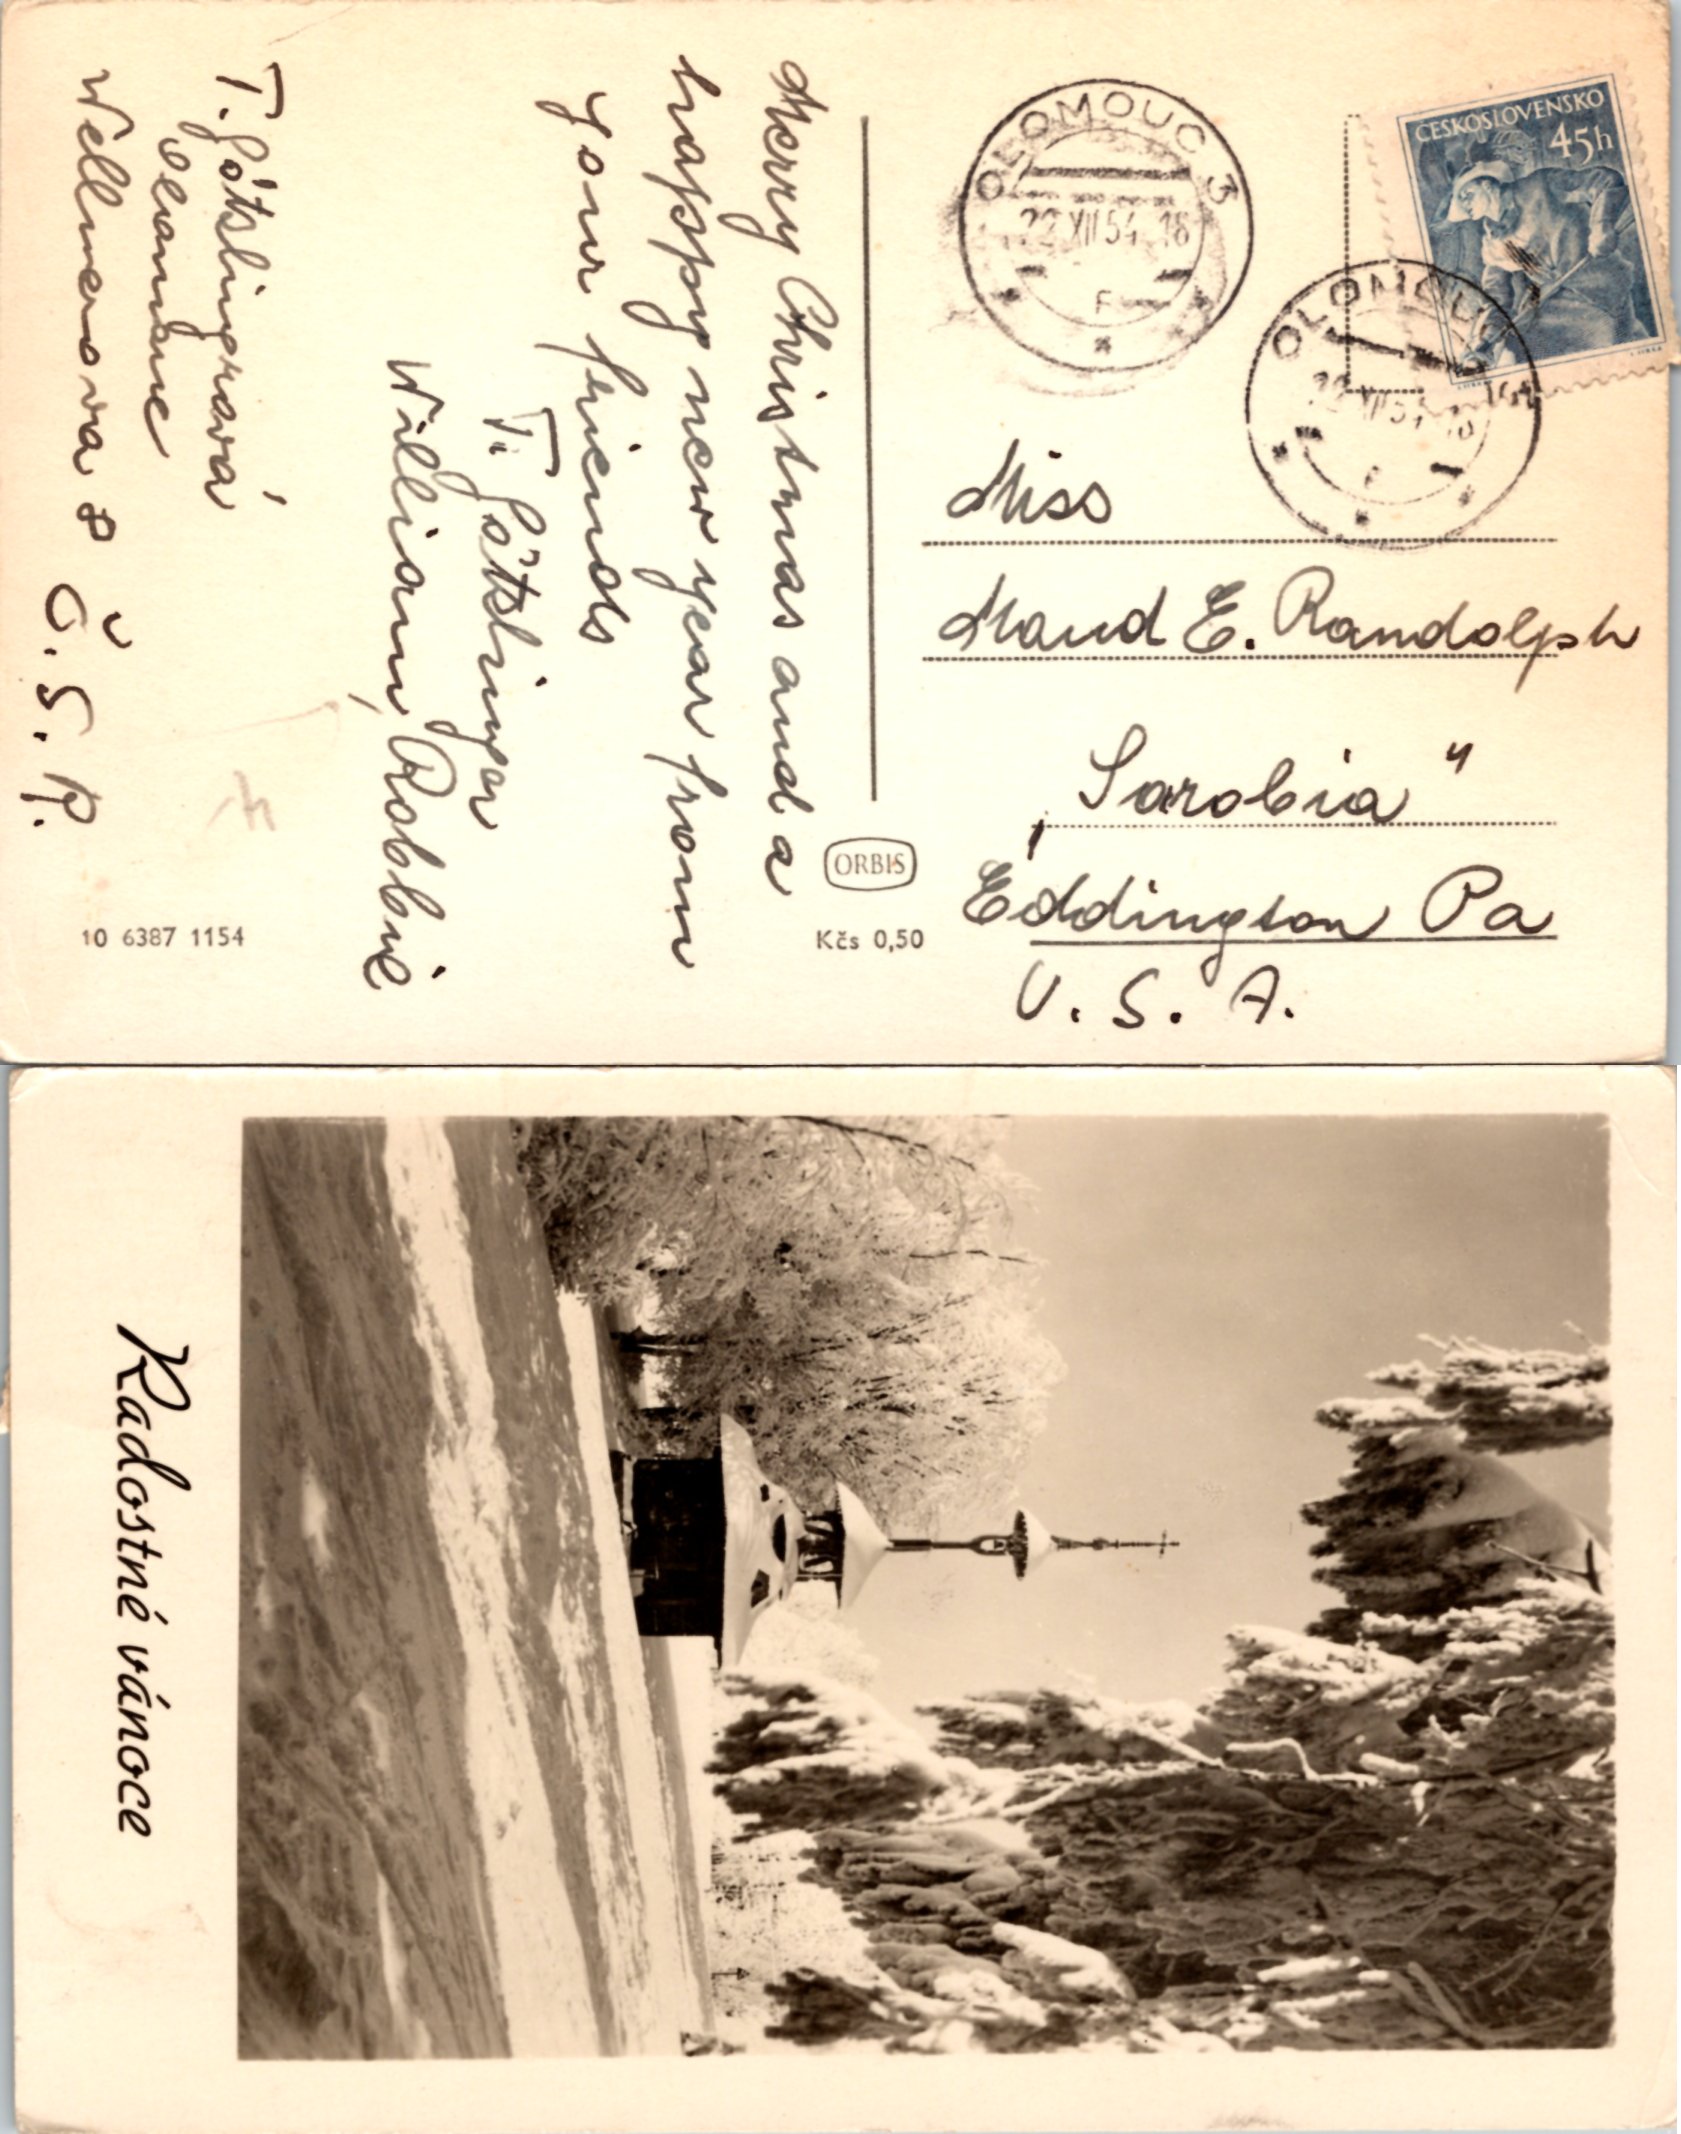 Merry Christmas and a
happy new year from
your friends
T. Götzlinger
William, Robbie
T. Götzlingrová
Olomouc
Wellnerova 8 Č.S.R.
10 6387 1154
ORBIS
Kčs 0,50
OLOMOUC 3
22 XII 54 - 18
F
ČESKOSLOVENSKO
45h
OLOMOUC
22 XII 54 - 18
Miss
Maud E. Randolph
„Sarobia"
Eddington Pa
U. S. A.
Radostné vánoce